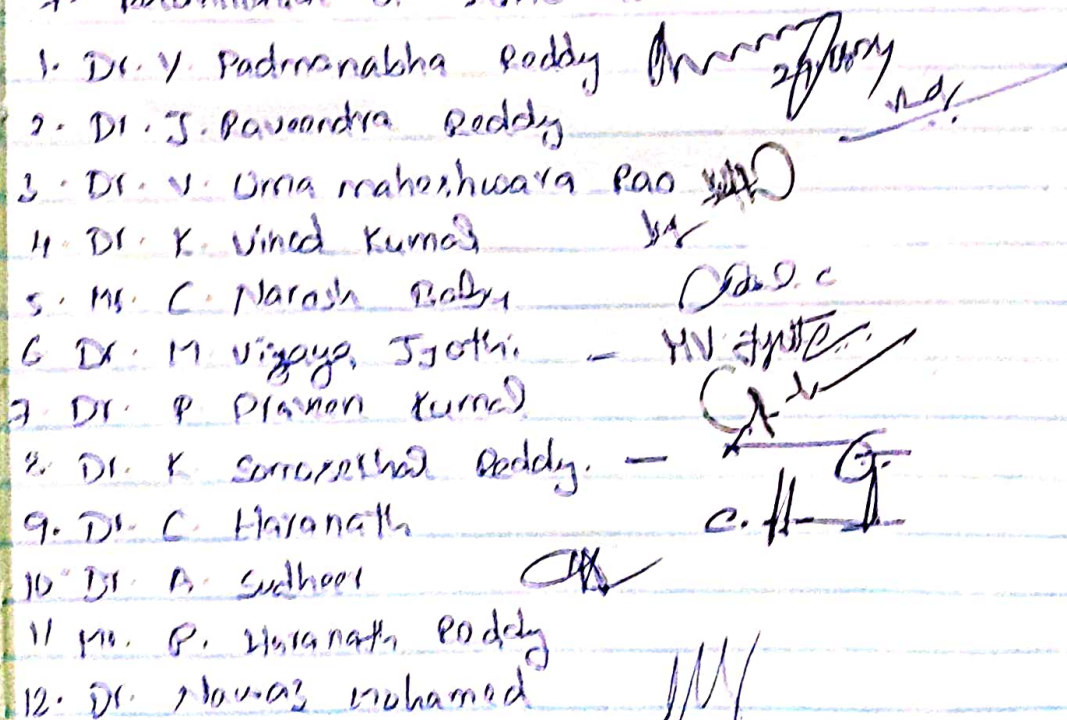 1. Dr. Y. Padmanabha Reddy
2. Dr. J. Raveendra Reddy
3. Dr. V. Uma maheshwara Rao
4. Dr. K. Vinod Kumar
5. Mr. C. Naresh Babu
6 Dr. M. Vijaya Jyothi. - MV Jyothi
7 Dr. P. Praveen Kumar
8. Dr. K. Somasekhar Reddy. -
9. Dr. C. Haranath C. H
10 Dr. A. Sudheer
11 Mr. P. Haranath Reddy
12. Dr. Nawaz Mohamed